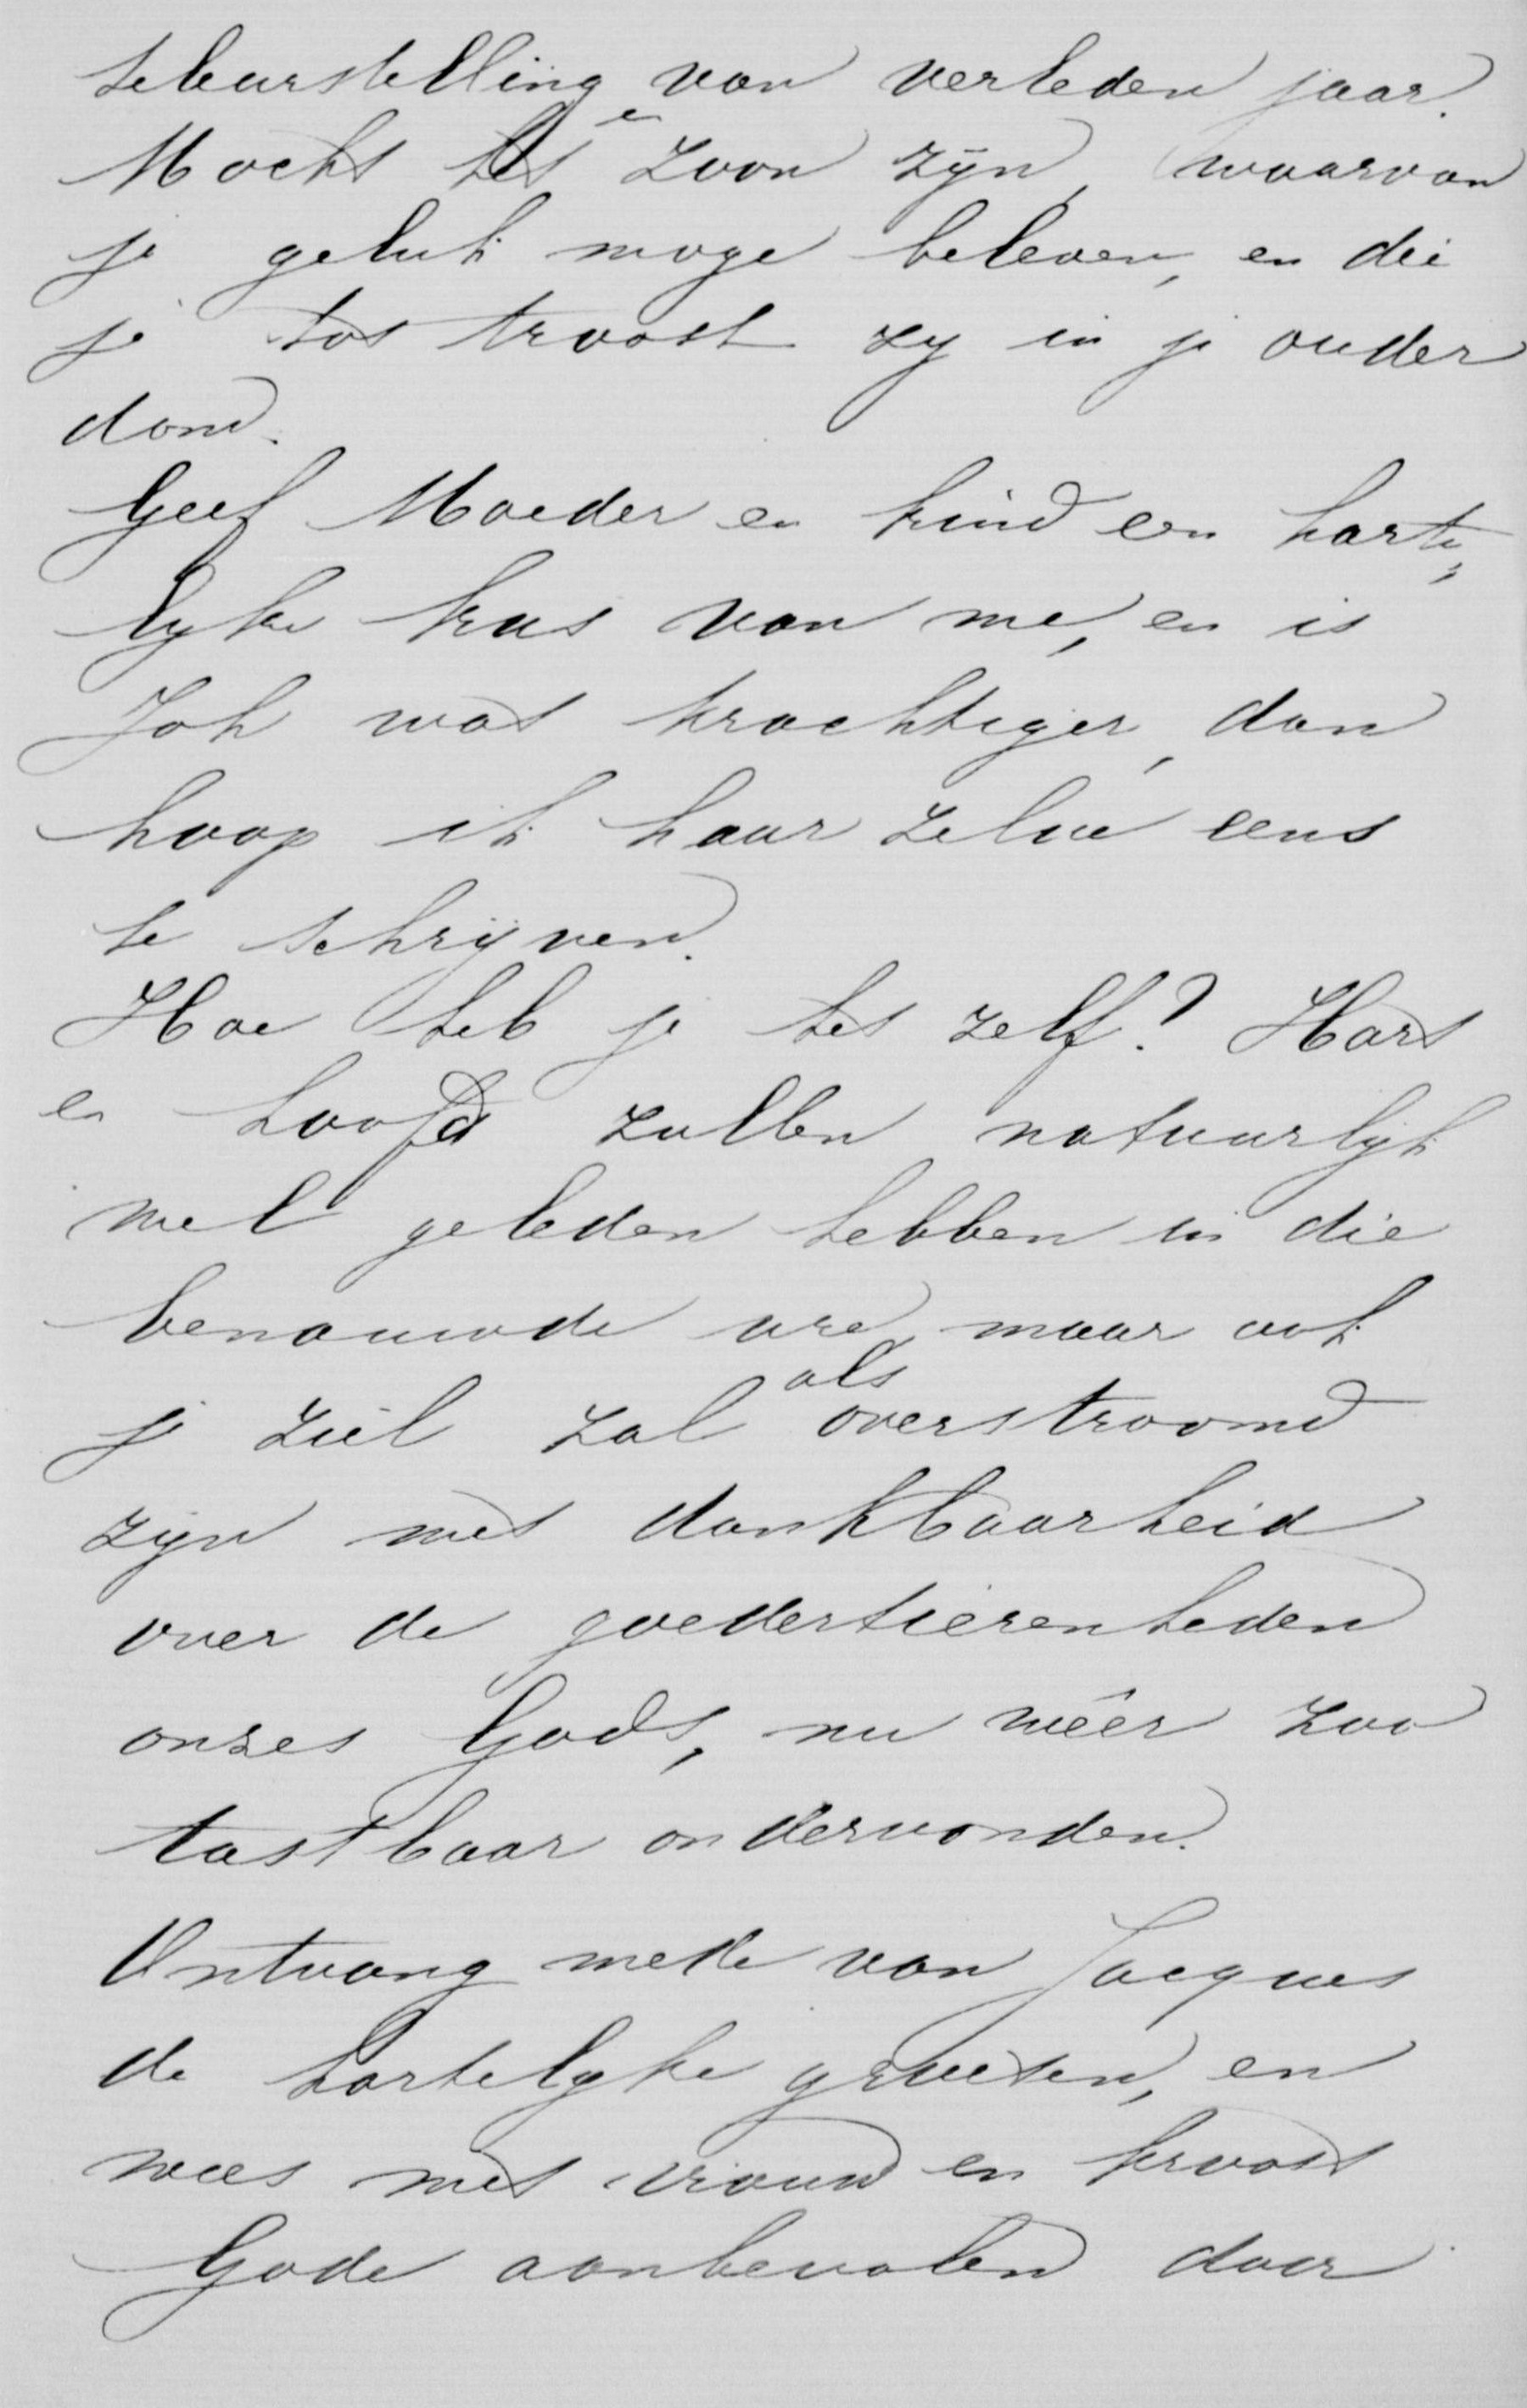 teleurstelling van verleden jaar.
Mocht het een zoon zijn, waarvan
je geluk moge beleven, en die
je tot troost zy in je ouder
dom.
Geef Moeder en kind een harte,,
lyke kus van me, en is
Joh wat krachtiger, dan
hoop ik haar zelve eens
te schrijven.
Hoe heb je het zelf? Hart
en hoofd zullen natuurlijk
wel geleden hebben in die
benauwde ure, maar ook
je ziel zal als overstroomd
zijn met dankbaarheid
over de goedertierenheden
onzes Gods, nu wêer zoo
tastbaar ondervonden.
Ontvang mede van Jacques
de hartelyke groeten, en
wees met vrouw en kroost
Gode aanbevolen door